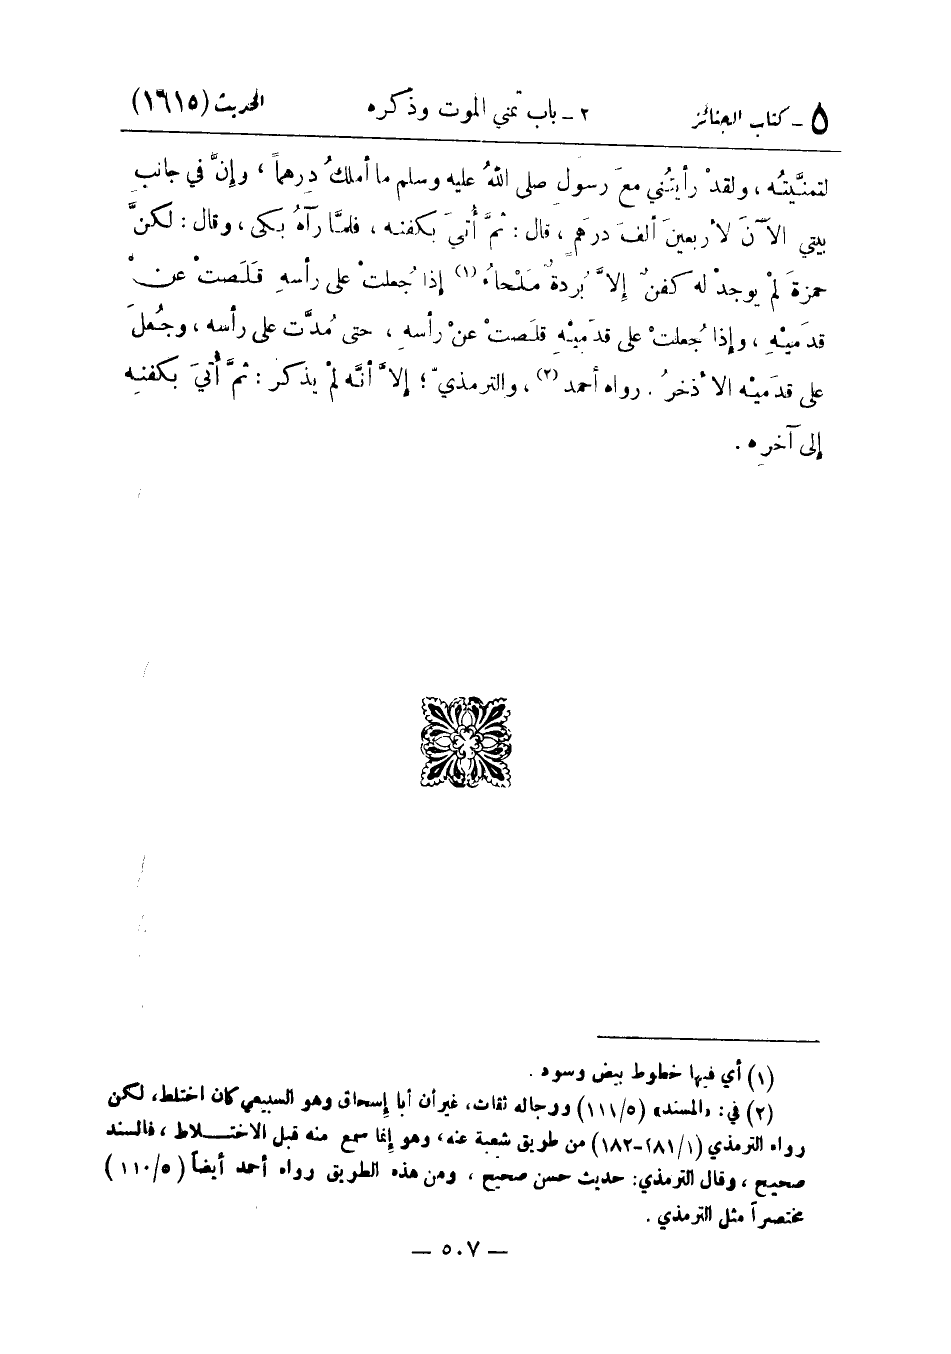 ٥ - كتاب الجنائز ٢ - باب تمني الموت وذكره الحديث (١٦١٥)
لتمنَّيتُه ، ولقدْ رأيتُني معَ رسولِ صلى اللهُ عليه وسلم ما أملكُ دِرهماً ، وإنَّ في جانبِ
بيتي الآنَ لأربعينَ ألفَ درهمٍ ، قال : ثمَّ أُتيَ بكفنه ، فلمَّا رآهُ بكى ، وقال : لكنَّ
حمزةَ لمْ يوجدْ له كفنٌ إلاَّ بُردةٌ مَلْحاءُ (١) إذا جُعلتْ على رأسهِ قَلَصتْ عنْ
قدَميْهِ ، وإذا جُعلتْ على قدَميْهِ قلَصتْ عنْ رأسهِ ، حتى مُدَّت على رأسه ، وجُعلَ
على قدَميْه الأذخرُ . رواه أحمد (٢) ، والترمذيّ ؛ إلاَّ أنَّه لمْ يذكر : ثمَّ أُتيَ بكفنهِ
إلى آخرِه .
(١) أي فيها خطوط بيض وسود .
(٢) في : «المسند» (١١١/٥) ورجاله ثقات، غير أن أبا إسحاق وهو السبيعي كان اختلط، لكن
رواه الترمذي (١٨١/١-١٨٢) من طريق شعبة عنه، وهو إنما سمع منه قبل الاختلاط ، فالسند
صحيح ، وقال الترمذي: حديث حسن صحيح ، ومن هذه الطريق رواه أحمد أيضاً (١١٠/٥)
مختصراً مثل الترمذي .
— ٥٠٧ —